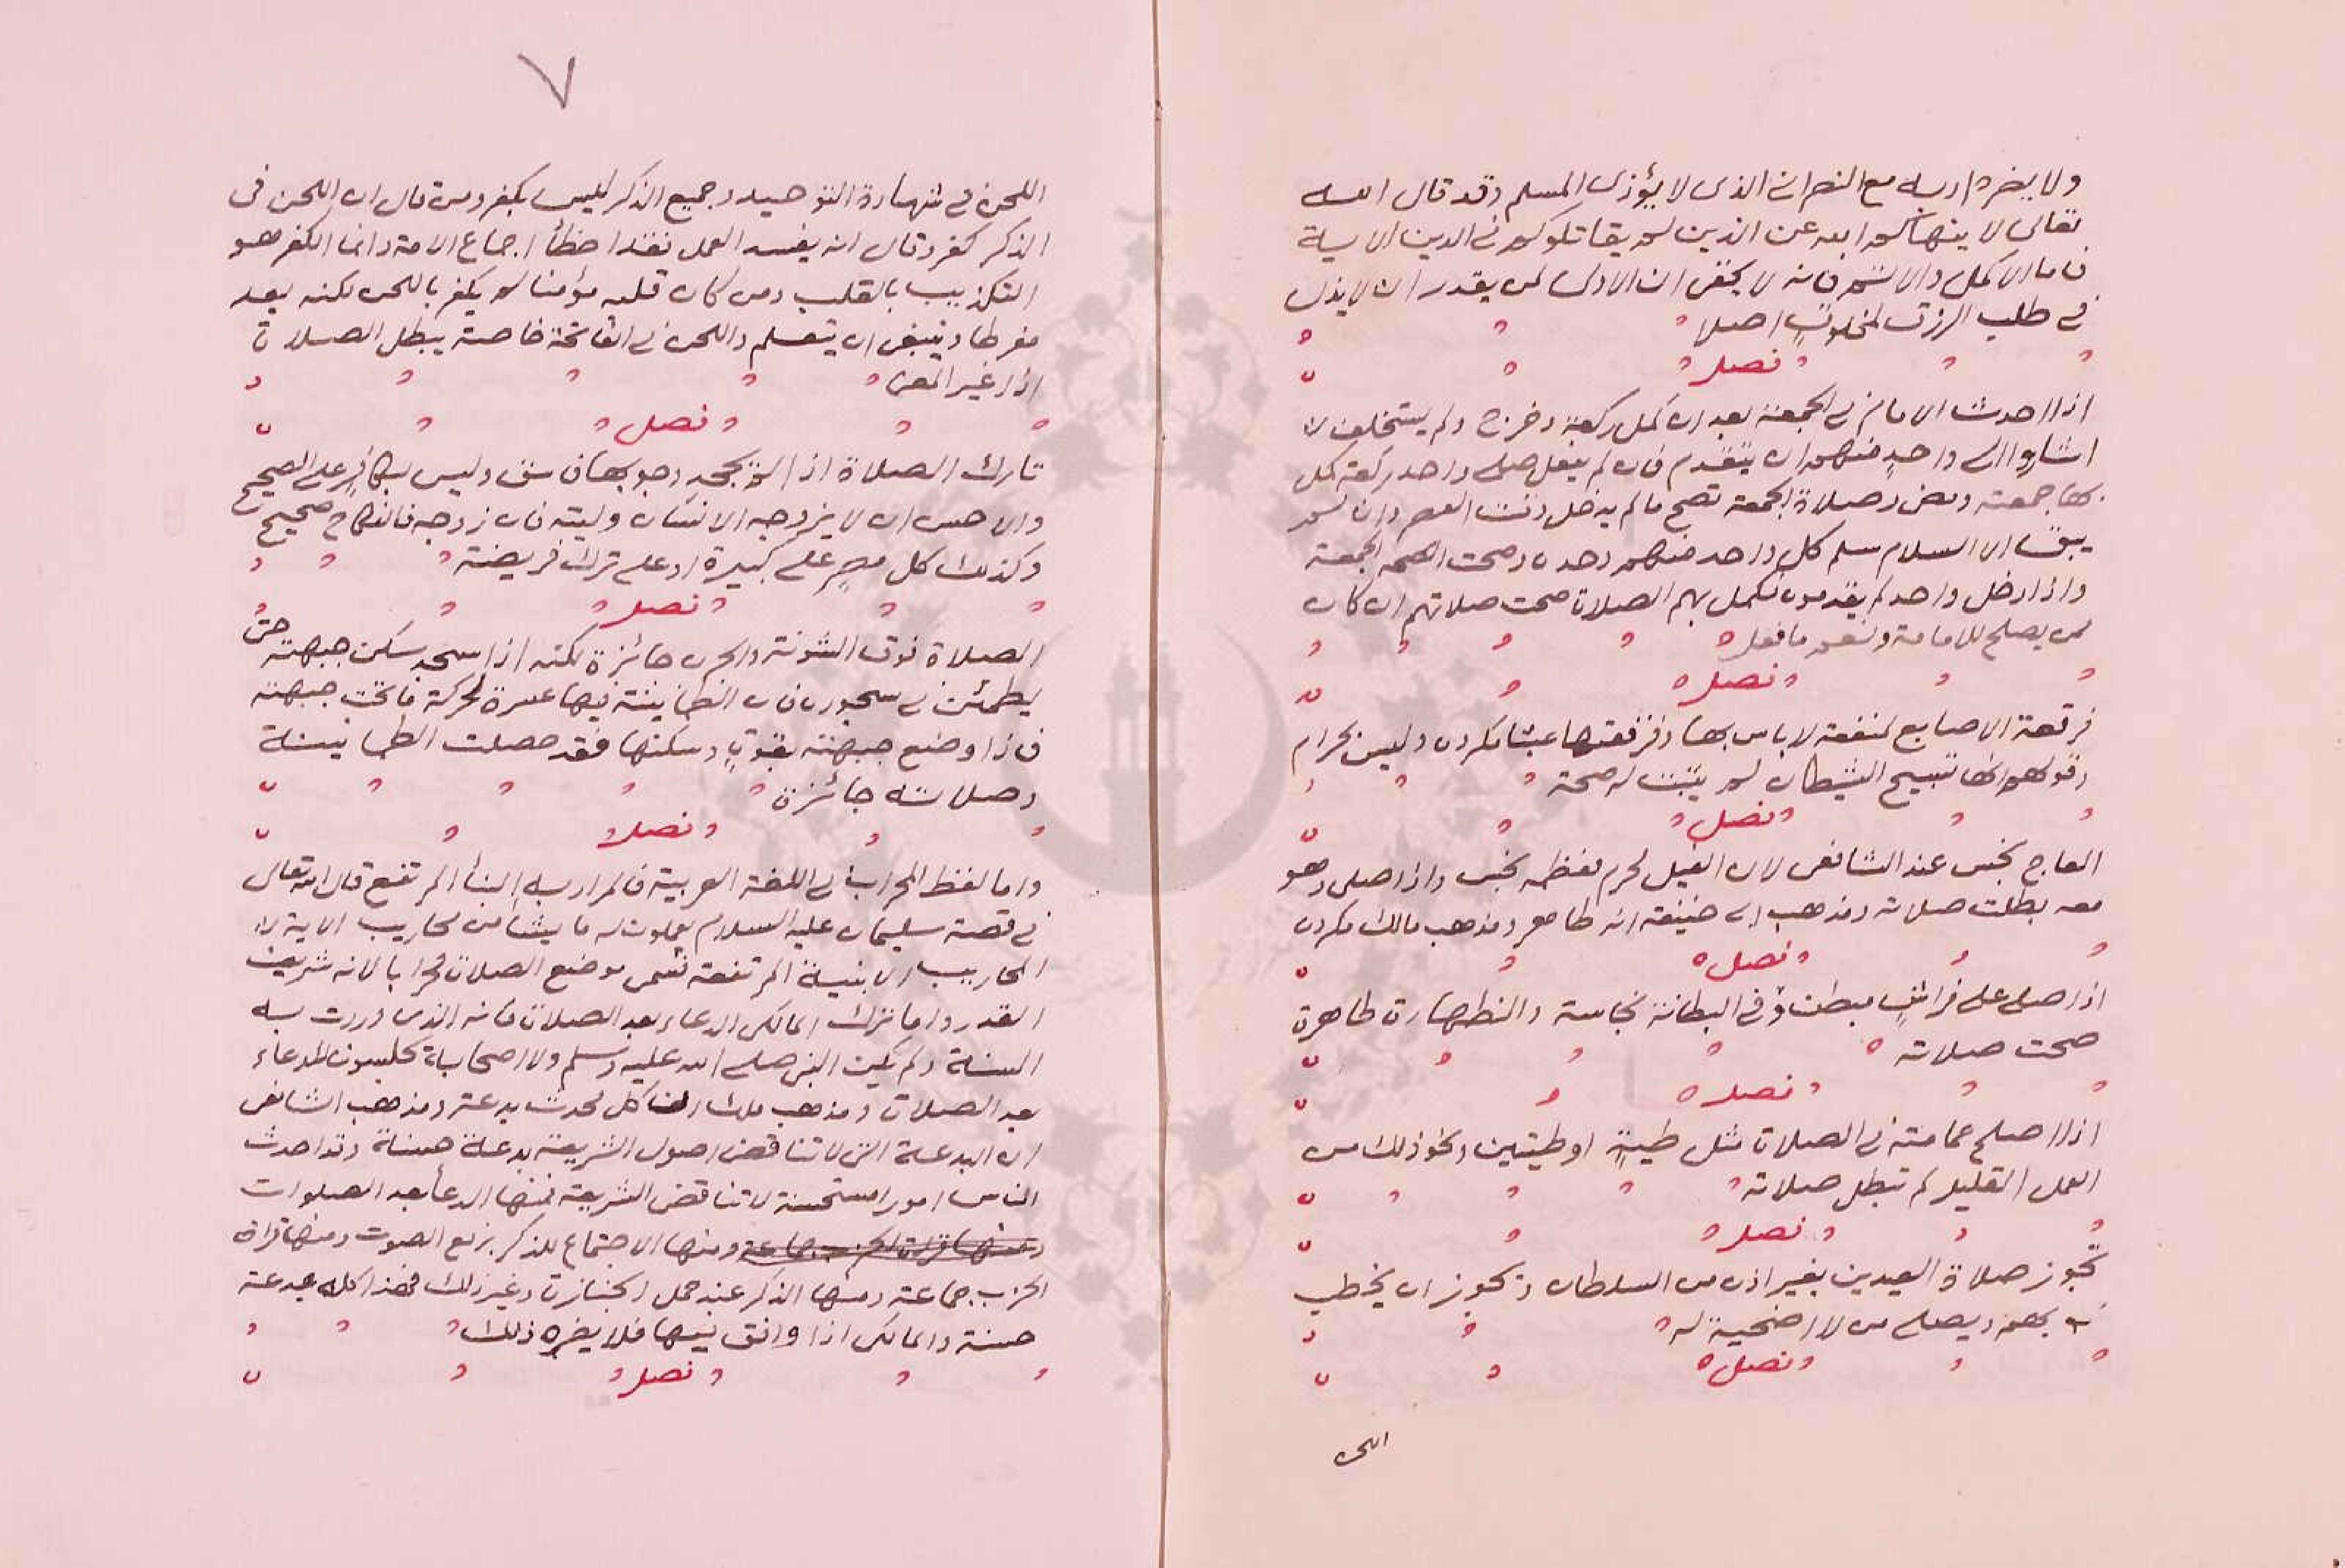 ولا يضره ادبه مع النصراني الذي لا يؤذي المسلم وقد قال الله
تعالى لا ينهاكم الله عن الذين لم يقاتلوكم في الدين الاية
فاما الاكمل والاشرف فانه لا يخفى ان الاولى لمن يقدر ان لا يذل
في طلب الرزق لمخلوق اصلا
فصل
اذا احدث الامام في الجمعة بعد ان كمل ركعة وخرج ولم يستخلف
اشاروا الى واحد منهم ان يتقدم فان لم يفعل صلى واحد ركعة كمل
بها جمعته وصلاة الجمعة تصح ما لم يدخل وقت العصر وان لم
يبق الا السلام سلم كل واحد منهم وحده وصحت لهم الجمعة
واذا دخل واحد لم يقدموه فكمل بهم الصلاة صحت صلاتهم ان كان
ممن يصلح للامامة ونعم ما فعل
فصل
فرقعة الاصابع لمنفعة لا باس بها وفرقعتها عبثا مكروه وليس بحرام
وقولهم انها تسبيح الشيطان لم يثبت له صحة
فصل
العاج نجس عند الشافعي لان الفيل محرم فعظمه نجس واذا صلى وهو
معه بطلت صلاته ومذهب ابي حنيفة انه طاهر ومذهب مالك مكروه
فصل
اذا صلى على فراش مبطن وفي البطانة نجاسة والظهارة طاهرة
صحت صلاته
فصل
اذا اصلح عمامته في الصلاة مثل طية او طيتين ونحو ذلك من
العمل القليل لم تبطل صلاته
فصل
تجوز صلاة العيدين بغير اذن من السلطان وتجوز ان يخطب
بهم ويصلي من لا اضحية له
فصل
اللحن
٧
اللحن في شهادة التوحيد وجميع الذكر ليس بكفر ومن قال ان اللحن في
الذكر كفر وقال انه يفسد العمل فقد اخطأ اجماع الامة وانما الكفر هو
التكذيب بالقلب ومن كان قلبه مؤمنا لم يكفر باللحن لكنه يعد
مفرطا وينبغي ان يتعلم واللحن في الفاتحة خاصة يبطل الصلاة
اذا غير المعنى
فصل
تارك الصلاة اذا لم يجحد وجوبها فاسق وليس بكافر على الصحيح
والاحسن ان لا يزوجه الانسان وليته فان زوجه فالنكاح صحيح
وكذلك كل مصر على كبيرة او على ترك فريضة
فصل
الصلاة فوق الشونة والجرن جائزة لكنه اذا سجد سكن جبهته حتى
يطمئن في سجوده فان الطمانينة فيها عسرة لحركة ما تحت جبهته
فاذا وضع جبهته بقوة وسكنها فقد حصلت الطمانينة
وصلاته جائزة
فصل
واما لفظ المحراب في اللغة العربية فالمراد به البنأ المرتفع قال الله تعالى
في قصة سليمان عليه السلام يعملون له ما يشا من محاريب الاية لان
المحاريب الابنية المرتفعة فسمى موضع الصلاة محرابا لانه شريف
القدر واما ترك المالكي الدعاء بعد الصلاة فانه الذي وردت به
السنة ولم يكن النبي صلى الله عليه وسلم ولا اصحابه يجلسون للدعاء
بعد الصلاة ومذهب مالك ان كل محدث بدعة ومذهب الشافعي
ان البدعة التي لا تناقض اصول الشريعة بدعة حسنة وقد احدث
الناس امورا مستحسنة لا تناقض الشريعة فمنها الدعأ بعد الصلوات
ومنها قراة الحزب جماعة ومنها الاجتماع للذكر برفع الصوت ومنها قراة
الحزب جماعة ومنها الذكر عند حمل الجنازة وغير ذلك فهذا كله بدعة
حسنة والمالكي اذا وافق فيها فلا يضره ذلك
فصل